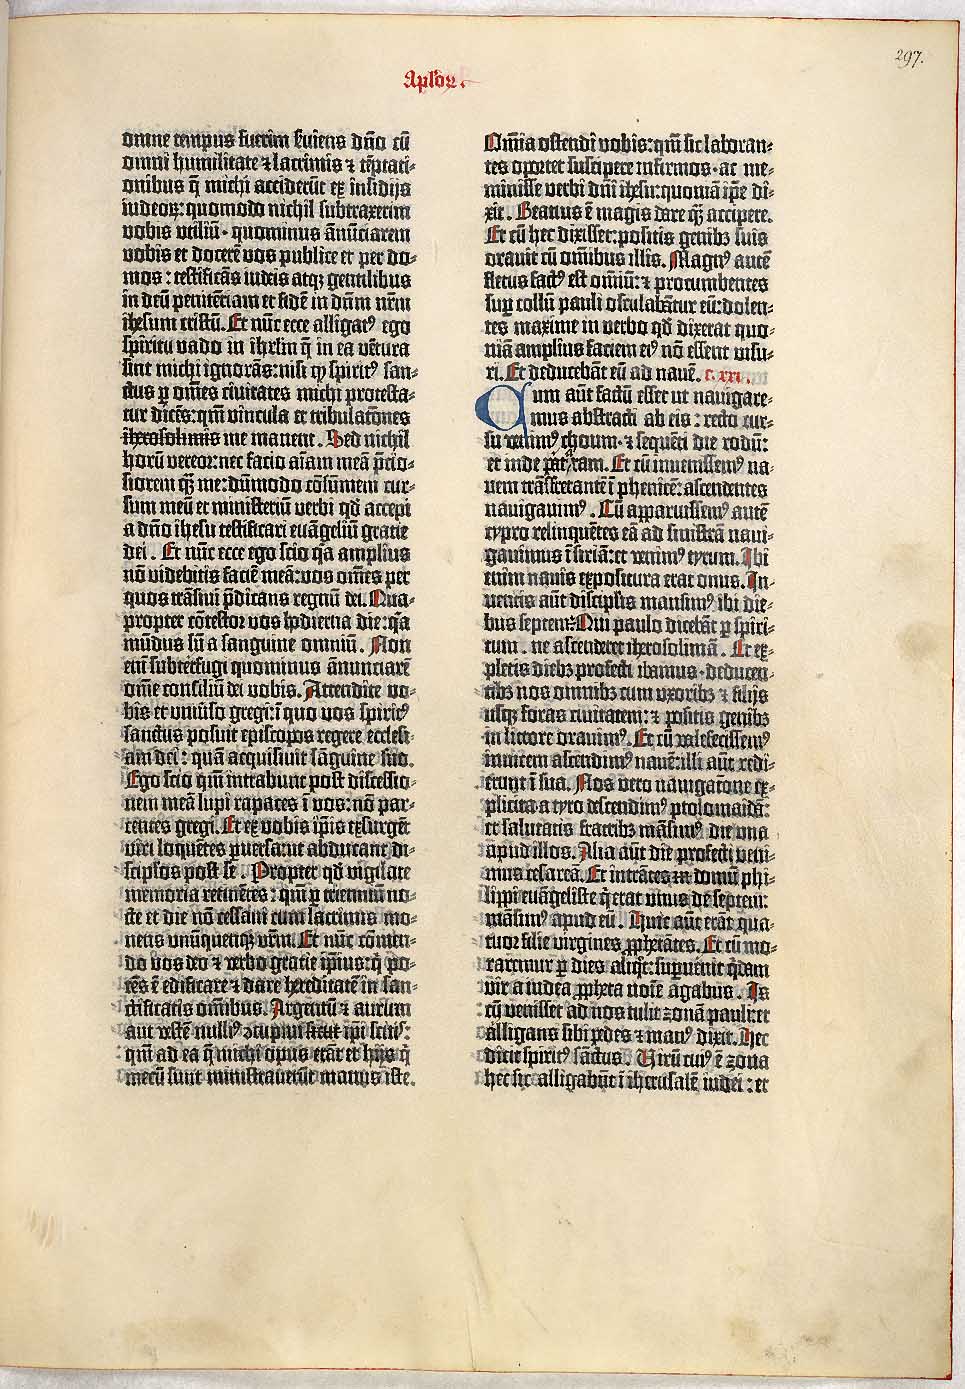 297.
Apl'oꝝ.
omne tempus fuerim s̃uiens dño cū
omni humilitate ⁊ lacrimis ⁊ tẽptati-
onibus q̃ michi acciderūt ex insidijs
iudeoꝝ: quomodo nichil subtraxerim
vobis utiliū· quominus ānūciarem
vobis et docerē vos publice et per do-
mos: testificās iudeis atqꝫ gentilibus
in deū penitētiam et fidē in dñm nr̃m
ihesum cristū. Et nūc ecce alligatꝰ ego
spiritu vado in ihrlm̄ q̃ in ea vētura
sint michi ignorās: nisi qꝙ spiritꝰ san-
ctus ꝑ om̄es civitates michi protesta-
tur dicēs: qm̄ vincula et tribulatōnes
iherosolimis me manent. Sed nichil
horū vereor: nec facio aīam meā p̄cio-
siorem qȝ̃ me: dūmodo cōsumem cur-
sum meū et ministeriū verbi qd̄ accepi
a dño ihesu testificari euāgeliū gratie
dei. Et nūc ecce ego scio qꝛa amplius
nō videbitis faciē meā: vos om̄es per
quos trāsiui p̄dicans regnū dei. Qua-
propter cōtestor vos hodierna die: qꝛa
mūdus sū a sanguine omniū. Non
em̄ subterfugi quominus ānunciarē
om̄e consiliū dei vobis. Attendite vo-
bis et vniu̾so gregi: ī quo vos spiritꝰ
sanctus posuit episcopos regere ecclesi-
am dei: quā acquisiuit sāguine suo.
Ego scio qm̄ intrabunt post discessio-
nem meā lupi rapaces ī vos: nō par-
centes gregi. Et ex vobis ip̄is exsurgēt
viri loquētes ꝑuersa: ut abducant di-
scipulos post se. Propter qd̄ vigilate
memoria retinētes: qm̄ ꝑ trienniū no-
cte et die nō cessaui cum lacrimis mo-
nens unūquenqꝫ vr̄m. Et nūc cōmen-
do vos deo ⁊ verbo gratie ip̄ius: q̇ po-
tēs ē edificare ⁊ dare hereditatē in san-
ctificatis om̄ibus. Argentū ⁊ aurum
aut vestē nulliꝰ ꝯcupiui sicut ip̄i scitis:
qm̄ ad ea q̃ michi opus erāt et hijs q̇
mecū sunt ministrauerūt manus iste.
Om̄ia ostendi vobis: qm̄ sic laboran-
tes oportet suscipere infirmos· ac me-
minisse verbi dn̄i ihesu: quoniā ip̄e di-
xit. Beatius ē magis dare qȝ̃ accipere.
Et cū hec dixisset: positis genibꝫ suis
orauit cū om̄ibus illis. Magnꝰ autē
fletus factꝰ est om̄iū: ⁊ procumbentes
suꝑ collū pauli osculabātur eū: dolen-
tes maxime in verbo qd̄ dixerat quo-
niā amplius faciem eiꝰ nō essent visu-
ri. Et deducebāt eū ad nauē. c. xxi.
Cum aūt factū esset ut nauigare-
mus abstracti ab eis: recto cur-
su venimꝰ choum· ⁊ sequēti die rodū:
et inde pat̾ram. Et cū inuenissemꝰ na-
uem trāsfretantē ī phenicē: ascendentes
nauigauimꝰ. Cū apparuissemꝰ autē
cypro relinquētes eā ad sinistrā naui-
gauimus ī siriā: et venimꝰ tyrum. Ibi
enim nauis expositura erat onus. In-
uentis aūt discipl'is mansimꝰ ibi die-
bus septem: Qui paulo dicebāt ꝑ spiri-
tum· ne ascenderet iherosolimā. Et ex-
pletis diebꝫ profecti ibamus· deducen-
tibꝫ nos omnibꝫ cum vxoribꝫ ⁊ filijs
usqꝫ foras ciuitatem: ⁊ positis genibꝫ
in littore orauimꝰ. Et cū valefecissemꝰ
inuicem ascendimꝰ nauē: illi aūt redi-
erunt ī sua. Nos vero nauigatōne ex-
plicita a tyro descendimꝰ ptolomaidā:
et salutatis fratribꝫ māsimꝰ die vna
apud illos. Alia aūt die profecti veni-
mus cesareā. Et intrātes in domū phi-
lippi euāgeliste q̇ erat vnus de septem:
māsimꝰ apud eū. Huic aūt erāt qua-
tuor filie virgines ꝓphetātes. Et cū mo-
raremur ꝑ dies aliq̇t: suꝑuenit q̇dam
vir a iudea ꝓpheta noīe agabus. Is
cū venisset ad nos tulit zonā pauli: et
alligans sibi pedes ⁊ manꝰ dixit. Hec
dicit spiritꝰ sāctus. Virū cuiꝰ ē zona
hec sic alligabūt ī iherusalē iudei: et